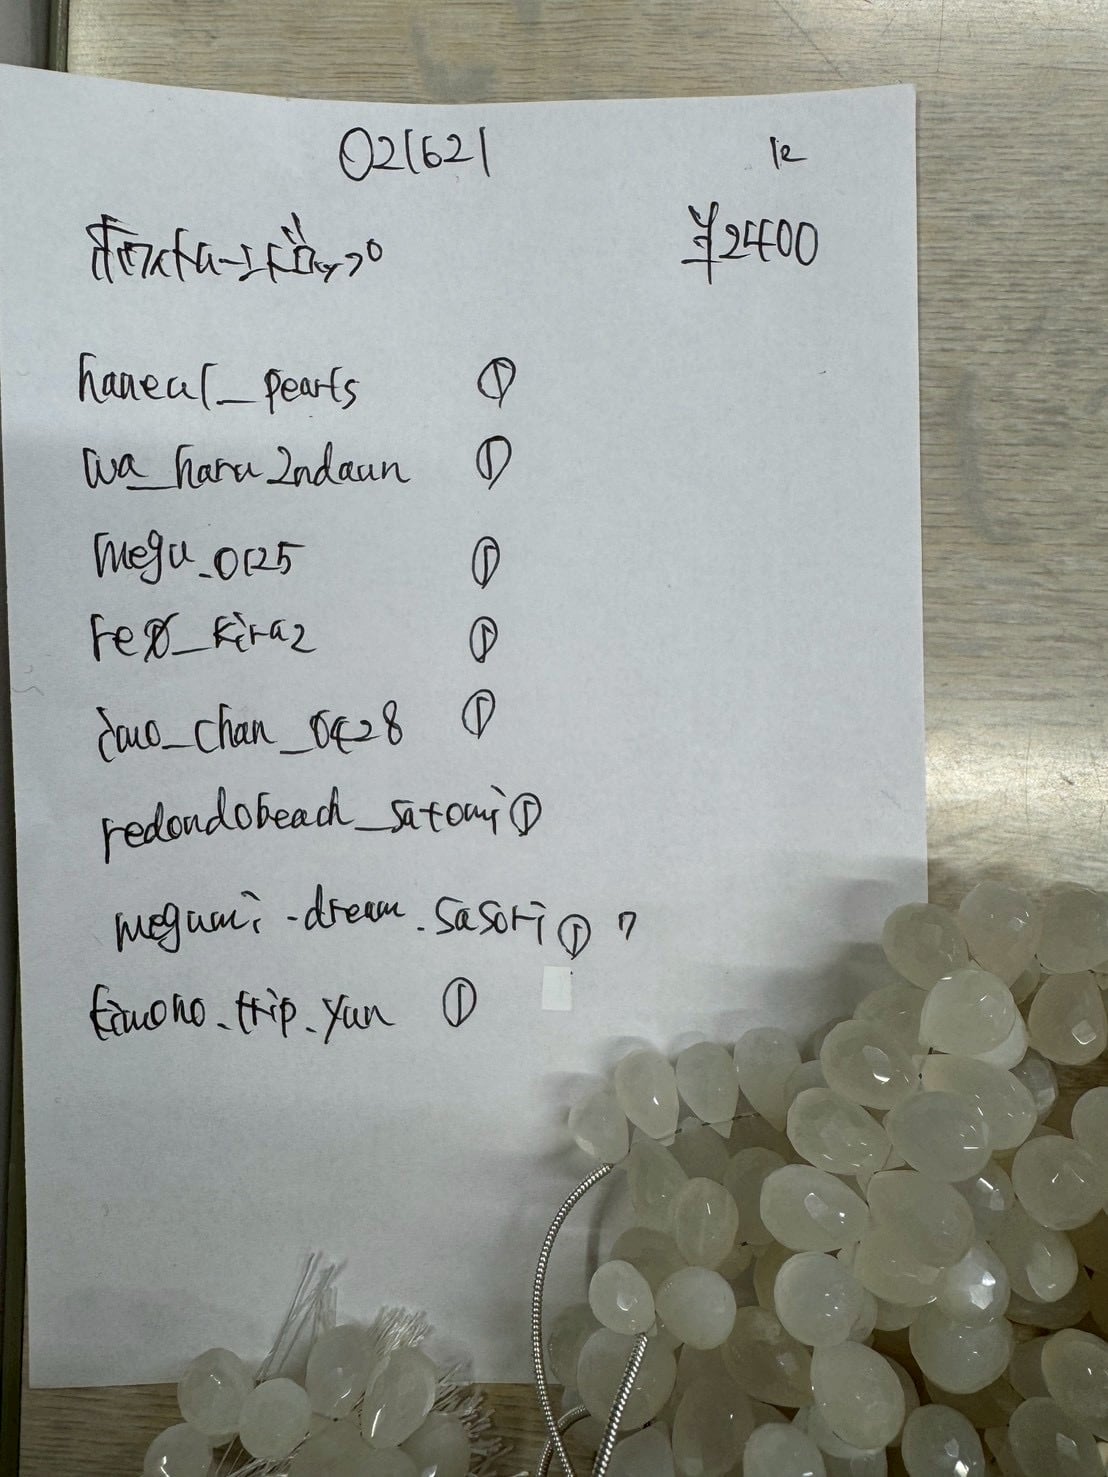 021621 12
¥2400
haneul_pearls ①
wa_haru2ndaun ①
megu_0125 ①
①
_chan_0428 ①
redondobeach_satomi ①
megumi.dream.sasori ① 7
kimono.trip.yun ①